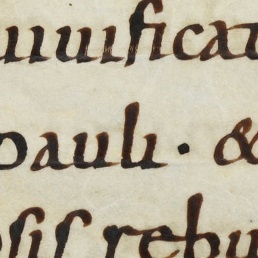 uiuificat
pauli · &
psis rebu